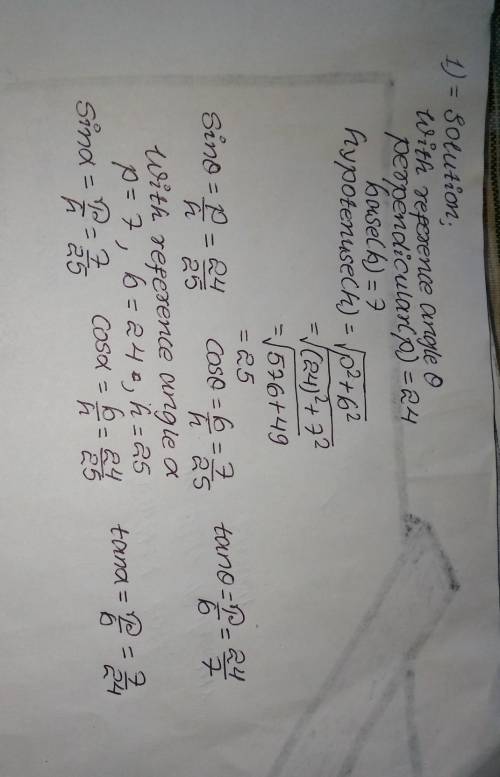 1) = Solution;
with reference angle θ
perpendicular(p) = 24
base(b) = 7
hypotenuse(h) = √p²+b²
= √(24)²+7²
= √576+49
= 25
sinθ = p/h = 24/25 cosθ = b/h = 7/25 tanθ = p/b = 24/7
with reference angle α
p = 7, b = 24, h = 25
sinα = p/h = 7/25 cosα = b/h = 24/25 tanα = p/b = 7/24